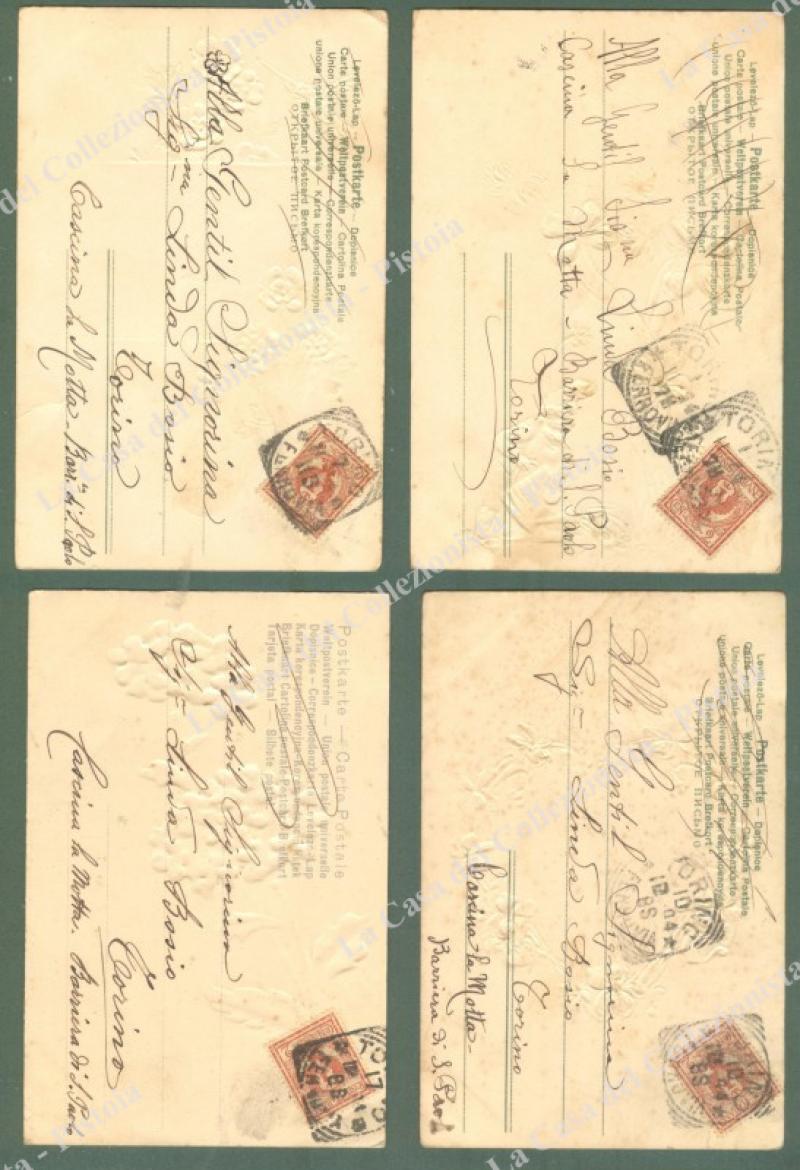 Levelező-Lap – Postkarte – Dopisnice
Carte postale – Weltpostverein – Cartolina Postale
Union postale universelle – Correspondenzkarte
Unione postale universale – Karta korespondencyjna
Briefkaart Postcard Brefkort
ОТКРЫТОЕ ПИСЬМО
Alla Gentil Signorina
Sig.na Linda Bosio
Torino
Cascina la Motta – Barr.a di S. Paolo
Levelező-Lap – Postkarte – Dopisnice
Carte postale – Weltpostverein – Cartolina Postale
Union postale universelle – Correspondenzkarte
Unione postale universale – Karta korespondencyjna
Briefkaart Postcard Brefkort
ОТКРЫТОЕ ПИСЬМО
Alla Gentil Sig.na
Linda Bosio
Cascina la Motta – Barriera di S. Paolo
Torino
TORINO
FERROVIA
Postkarte – Carte Postale
Weltpostverein – Union postale universelle
Dopisnice – Correspondenzkarte – Levelező-Lap
Karta korespondencyjna
Briefkaart Cartolina postale Postcard Brefkort
Tarjeta postal
Alla Gentil Signorina
Sig.na Linda Bosio
Torino
Cascina la Motta. Barriera di S. Paolo
TORINO
17
Levelező-Lap – Postkarte – Dopisnice
Carte postale – Weltpostverein – Cartolina Postale
Union postale universelle – Correspondenzkarte
Unione postale universale – Karta korespondencyjna
Briefkaart Postcard Brefkort
ОТКРЫТОЕ ПИСЬМО
Alla Gentil Signorina
Sig.na Linda Bosio
Torino
Cascina la Motta –
Barriera di S. Paolo
TORINO
10
La Casa del Collezionista - Pistoia